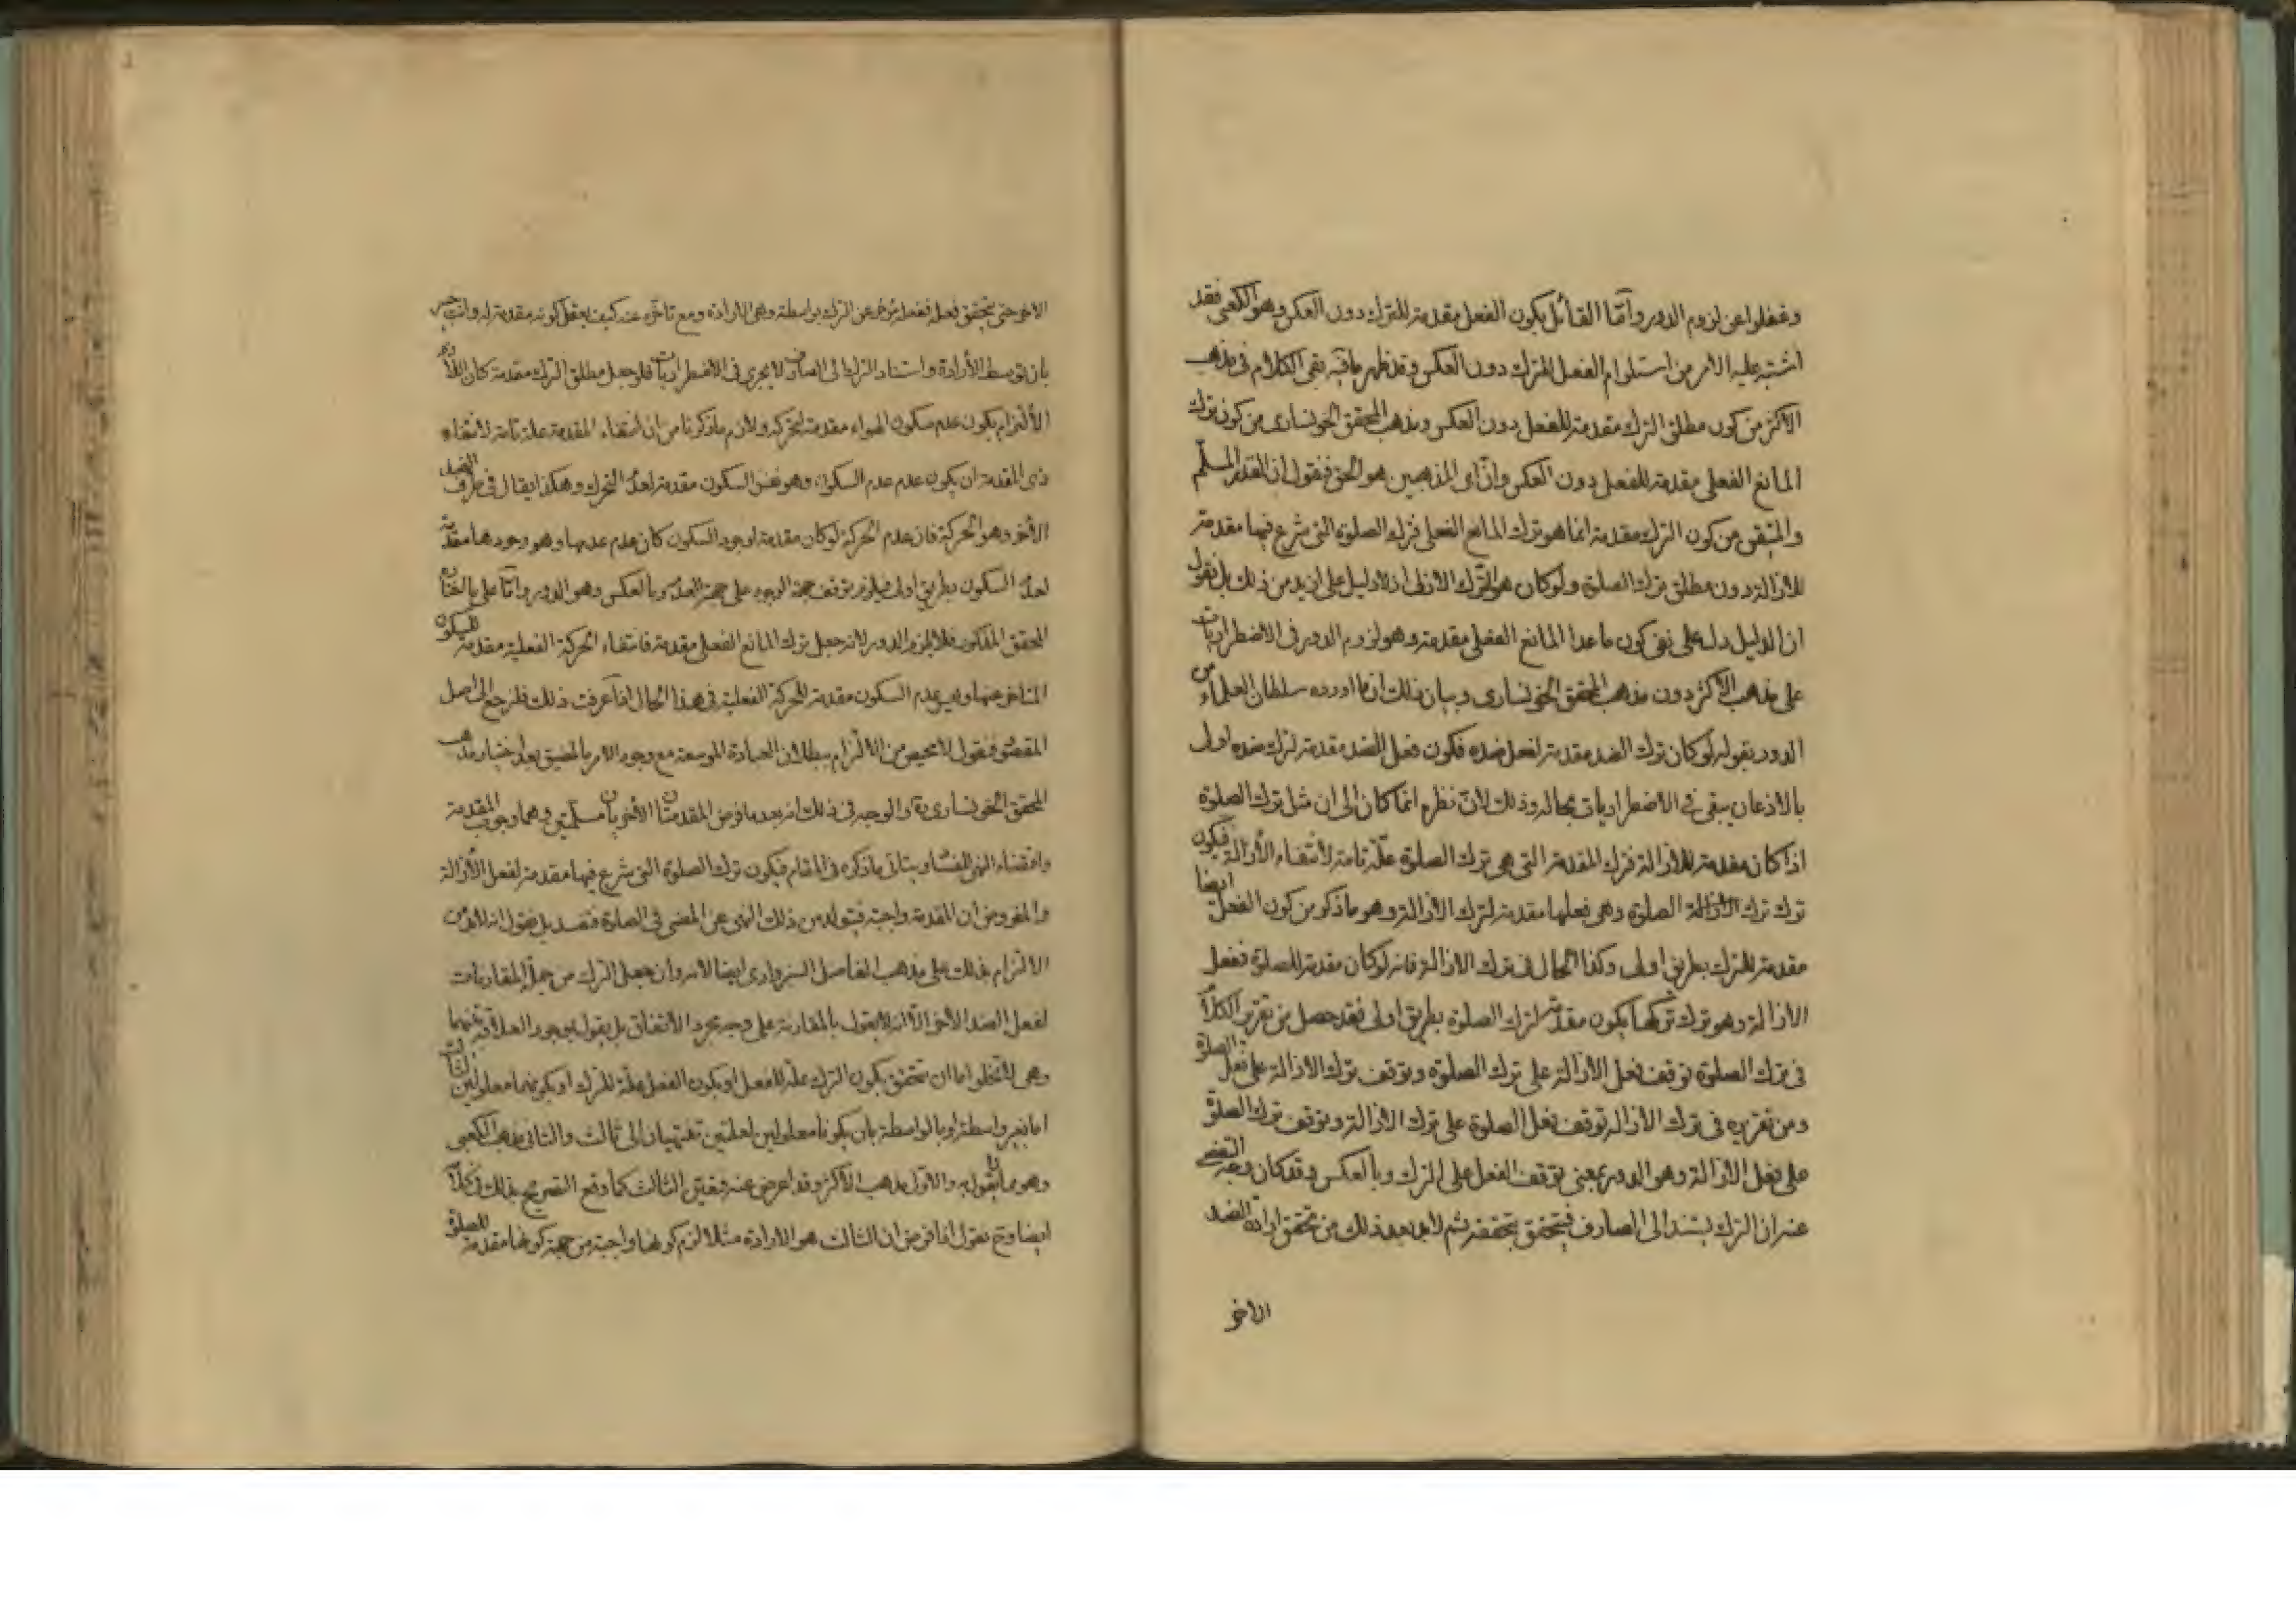 وغفلوا عن لزوم الدور وأمّا القائل بكون الفعل مقدمة للترك دون العكس وهو الكعبى فقد
اشتبه عليه الامر من استلزام الفعل للترك دون العكس وقد ظهر ما فيه بقى الكلام فى مذهب
الاكثر من كون مطلق الترك مقدمة للفعل دون العكس ومذهب المحقق الخونسارى من كون ترك
المانع الفعلى مقدمة للفعل دون العكس وانّ اى المذهبين هو الحق فنقول ان القدر المسلّم
والمتيقن من كون الترك مقدمة انما هو ترك المانع الفعلى فترك الصلوة التى شرع فيها مقدمة
للازالة دون مطلق ترك الصلوة ولو كان هو الترك الازلى اذ لا دليل على ازيد من ذلك بل نقول
ان الدليل دل على نفى كون ما عدا المانع الفعلى مقدمة وهو لزوم الدور فى الاضطراريات
على مذهب الاكثر دون مذهب المحقق الخونسارى وبيان ذلك ان ما اورده سلطان العلماء من
الدور بقوله لو كان ترك الضد مقدمة لفعل ضده فكون فعل الضد مقدمة لترك ضده اولى
بالاذعان يبقى فى الاضطراريات بحاله وذلك لانّ نظره انما كان الى ان مثل ترك الصلوة
اذا كان مقدمة للازالة فترك المقدمة التى هى ترك الصلوة علّة تامة لانتفاء الأزالة فيكون
ترك ترك الصلوة وهى فعلها مقدمة لترك الازالة وهو ما ذكر من كون الفعل ايضا
مقدمة للترك بطريق اولى وكذا الحال فى ترك الازالة فانه لو كان مقدمة للصلوة ففعل
الازالة وهو ترك تركها يكون مقدمة لترك الصلوة بطريق اولى فقد حصل من تقرير الكلام
فى ترك الصلوة توقف فعل الأزالة على ترك الصلوة وتوقف ترك الازالة على فعل الصلوة
ومن تقريره فى ترك الازالة توقف فعل الصلوة على ترك الازالة وتوقف ترك الصلوة
على فعل الازالة وهو الدور بمعنى توقف الفعل على الترك وبالعكس وقد كان وجه التفصى
عنه ان الترك يستند الى الصارف فيتحقق بتحققه ثم لا بد بعد ذلك من تحقق ارادة الضد
الاخر
الاخر حتى يتحقق فعله ففعله مؤخر عن الترك بواسطة وهى الارادة ومع تاخره عنه كيف يعقل كونه مقدمة له وانت خبير
بان توسط الأرادة واستناد الترك الى الصارف لا يجرى فى الاضطراريات فلو جعل مطلق الترك مقدمة كان اللازم
الألتزام بكون عدم سكون الهواء مقدمة لتحركه ولازم ما ذكرنا من ان انتفاء المقدمة علة تامة لانتفاء
ذى المقدمة ان يكون عدم عدم السكون وهو نفس السكون مقدمة لعدم التحرك وهكذا يقال فى طرف الضد
الأخر وهو الحركة فان عدم الحركة لو كان مقدمة لوجود السكون كان عدم عدمها وهو وجودها مقدمة
لعدم السكون بطريق اولى فيلزم توقف جهة الوجود على جهة العدم وبالعكس وهو الدور وامّا على
المحقق المذكور فلا يلزم الدور لانه جعل ترك المانع الفعلى مقدمة فانتفاء الحركة الفعلية مقدمة للسكون
المتاخر عنها وليس عدم السكون مقدمة للحركة الفعلية فى هذا الحال اذا عرفت ذلك فلنرجع الى اصل
المقصود فنقول لا محيص من الالتزام ببطلان العبادة الموسعة مع وجود الامر بالمضيق بعد اختيار مذهب
المحقق الخونسارى ره والوجه فى ذلك انه بعد ما فرض المقدمتان الاخريان مسلّمتين وهما وجوب المقدمة
واقتضاء النهى الفساد يتاتى ما ذكره فى المقام فيكون ترك الصلوة التى شرع فيها مقدمة لفعل الأزالة
والمفروض ان المقدمة واجبة فيتولد من ذلك النهى عن المضى فى الصلوة فتفسد بل نقول انه لا بد من
الالتزام بذلك على مذهب الفاضل السبزوارى ايضا لانه وان جعل الترك من جملة المقارنات
لفعل الضد الأخر الّا انه لا يقول بالمقارنة على وجه مجرد الأتفاق بل يقول بوجود العلاقة بينهما
وهى لا تخلو اما ان تتحقق بكون الترك علّة للفعل او بكون الفعل علّة للترك او بكونهما معلولين لثالث
اما بغير واسطة او بالواسطة بان يكونا معلولين لعلتين تنتهيان الى ثالث والثانى مذهب الكعبى
وهو مما لا يقول به والاوّل مذهب الاكثر وقد اعرض عنه فتعيّن الثالث كما وقع التصريح بذلك فى كلامه
ايضا وح نقول اذا فرض ان الثالث هو الارادة مثلا لزم كونها واجبة من جهة كونها مقدمة للصلوة